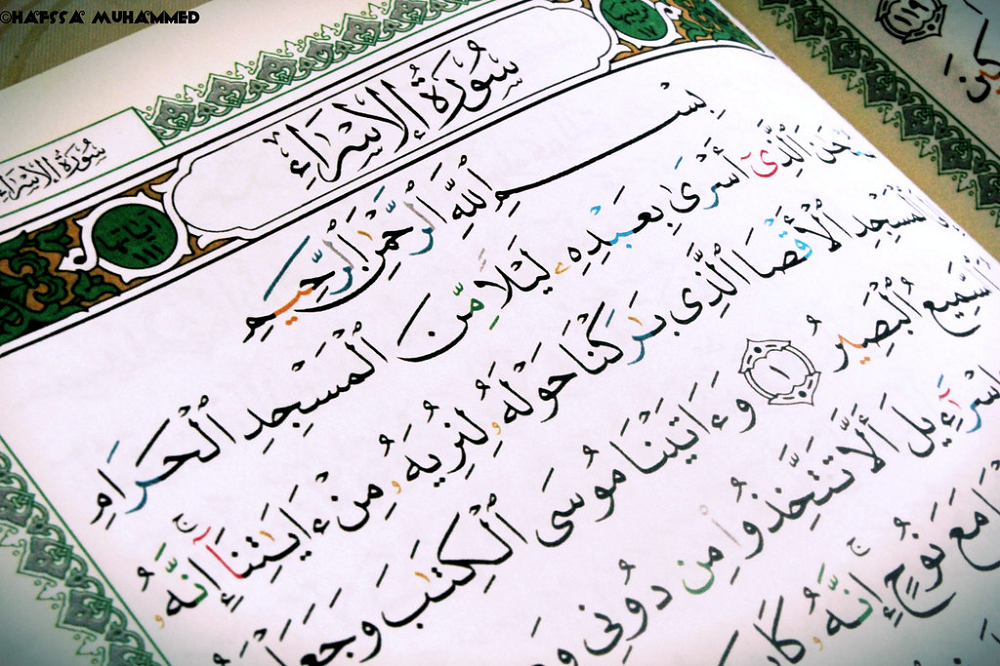 ©HAFSSA MUHAMMED
سُورَةُ الإِسْرَاءِ
سُورَةُ الإِسْرَاءِ
آياتها ١١١
١٧
بِسْمِ ٱللَّهِ ٱلرَّحْمَٰنِ ٱلرَّحِيمِ
ٱلَّذِىٓ أَسْرَىٰ بِعَبْدِهِۦ لَيْلًا مِّنَ ٱلْمَسْجِدِ ٱلْحَرَامِ
ٱلْمَسْجِدِ ٱلْأَقْصَا ٱلَّذِى بَٰرَكْنَا حَوْلَهُۥ لِنُرِيَهُۥ مِنْ ءَايَٰتِنَآ إِنَّهُۥ
ٱلسَّمِيعُ ٱلْبَصِيرُ ١ وَءَاتَيْنَا مُوسَى ٱلْكِتَٰبَ وَجَعَلْ
إِسْرَٰٓءِيلَ أَلَّا تَتَّخِذُوا۟ مِن دُونِى
مَعَ نُوحٍ إِنَّهُۥ